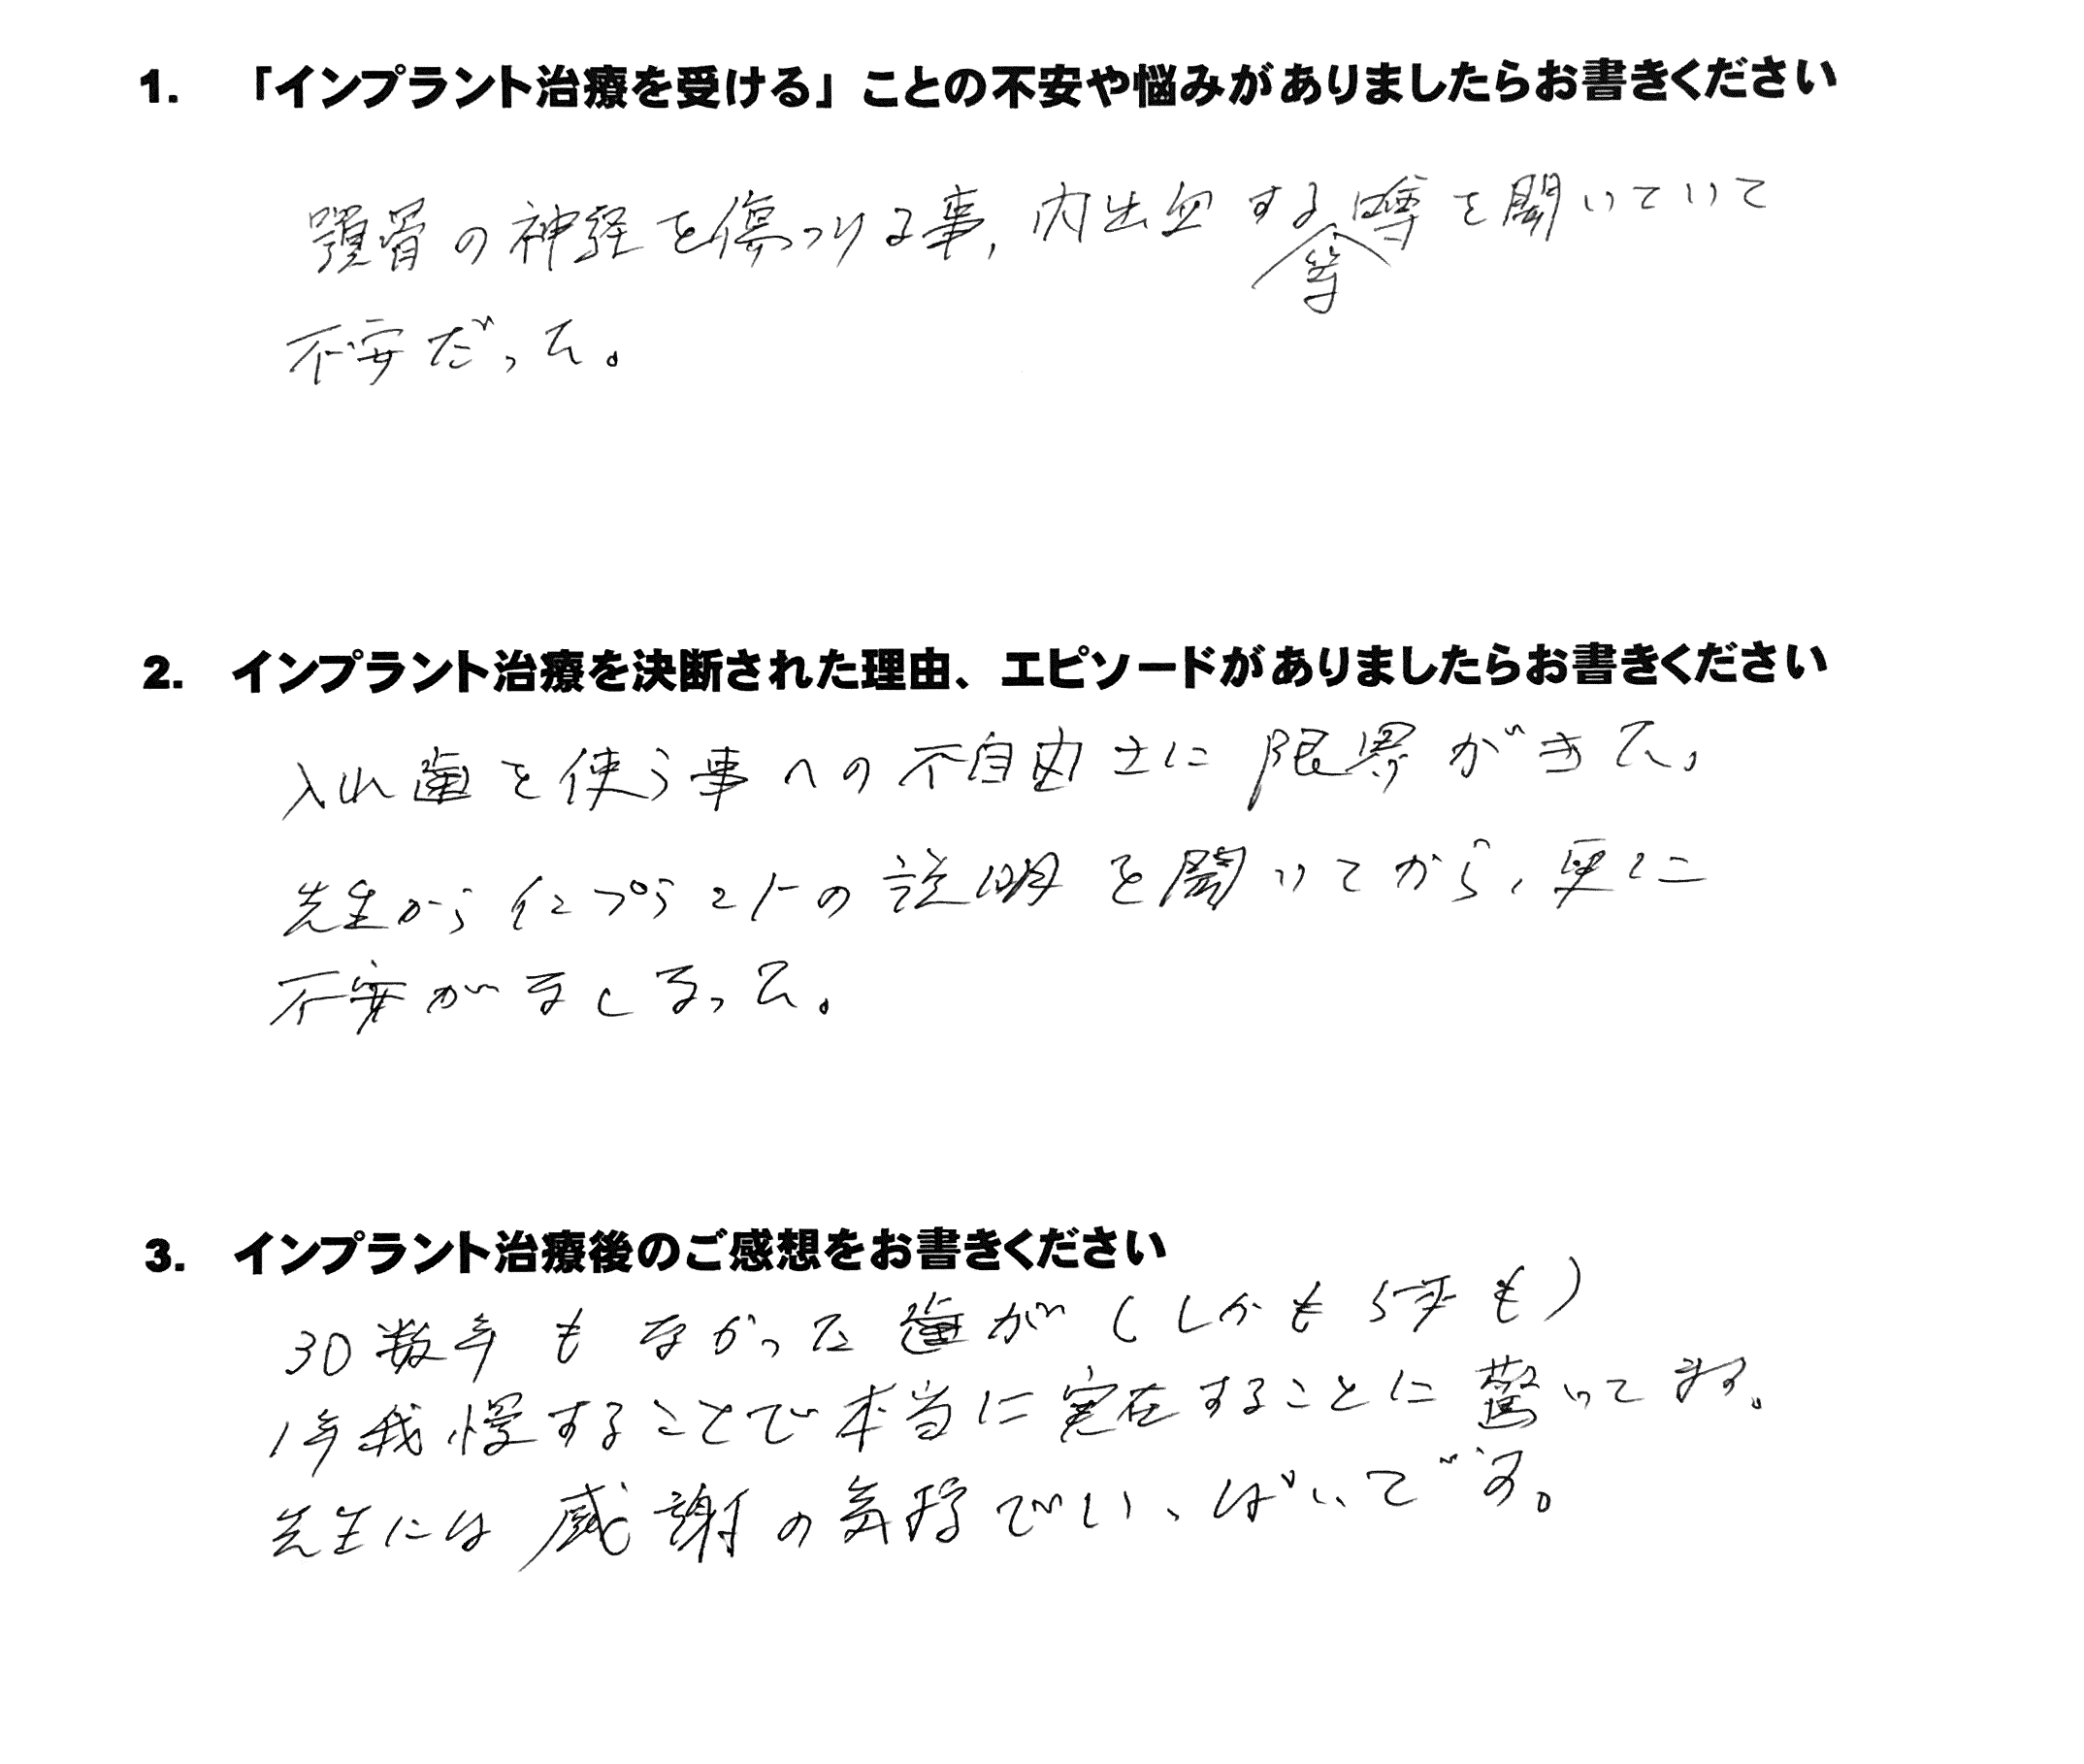 1. 「インプラント治療を受ける」ことの不安や悩みがありましたらお書きください
顎骨の神経を傷つける事、内出血する等噂を聞いていて
不安だった。
2. インプラント治療を決断された理由、エピソードがありましたらお書きください
入れ歯を使う事への不自由さに限界がきた。
先生からインプラントの説明を聞いてから、更に
不安がなくなった。
3. インプラント治療後のご感想をお書きください
30数年もなかった歯が(しかも5本も)
1年我慢することで本当に実在することに驚いてます。
先生には感謝の気持でいっぱいです。